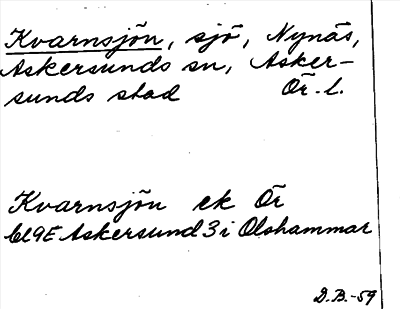 Kvarnsjön, sjö, Nynäs,
Askersunds sn, Asker-
sunds stad Ör. l.
Kvarnsjön ek Ör
bl 9E Askersund 3 i Olshammar
D.B.-59